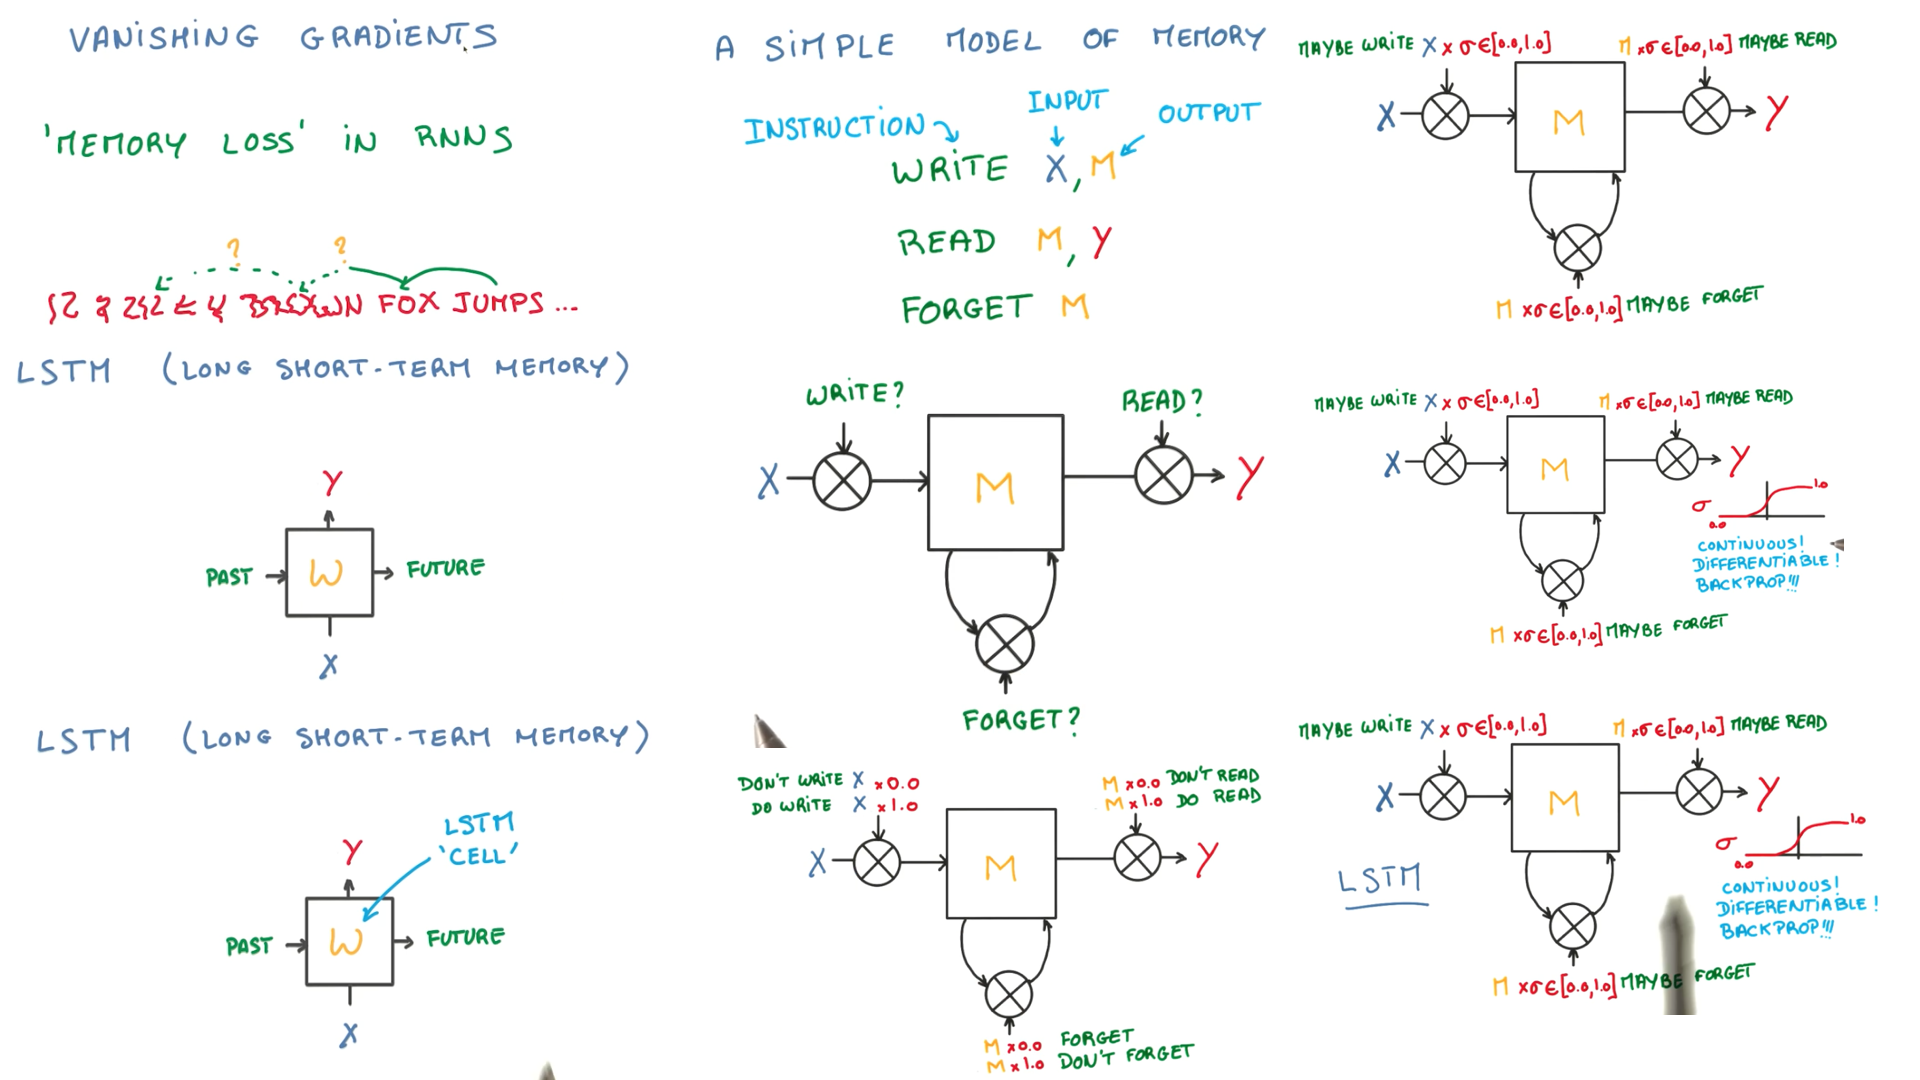 VANISHING GRADIENTS
'MEMORY LOSS' IN RNNS
? ?
BROWN FOX JUMPS ...
LSTM (LONG SHORT-TERM MEMORY)
Y
PAST W FUTURE
X
LSTM (LONG SHORT-TERM MEMORY)
LSTM
'CELL'
Y
PAST W FUTURE
X
A SIMPLE MODEL OF MEMORY
INPUT
INSTRUCTION OUTPUT
WRITE X, M
READ M, Y
FORGET M
WRITE? READ?
X M Y
FORGET?
DON'T WRITE X x0.0 M x0.0 DON'T READ
DO WRITE X x1.0 M x1.0 DO READ
X M Y
M x0.0 FORGET
M x1.0 DON'T FORGET
MAYBE WRITE X x σ∈[0.0,1.0] M xσ∈[0.0,1.0] MAYBE READ
X M Y
M xσ∈[0.0,1.0] MAYBE FORGET
MAYBE WRITE X x σ∈[0.0,1.0] M xσ∈[0.0,1.0] MAYBE READ
X M Y
σ 1.0
0.0
CONTINUOUS!
DIFFERENTIABLE!
BACKPROP!!!
M xσ∈[0.0,1.0] MAYBE FORGET
MAYBE WRITE X x σ∈[0.0,1.0] M xσ∈[0.0,1.0] MAYBE READ
X M Y
σ 1.0
0.0
LSTM
CONTINUOUS!
DIFFERENTIABLE!
BACKPROP!!!
M xσ∈[0.0,1.0] MAYBE FORGET